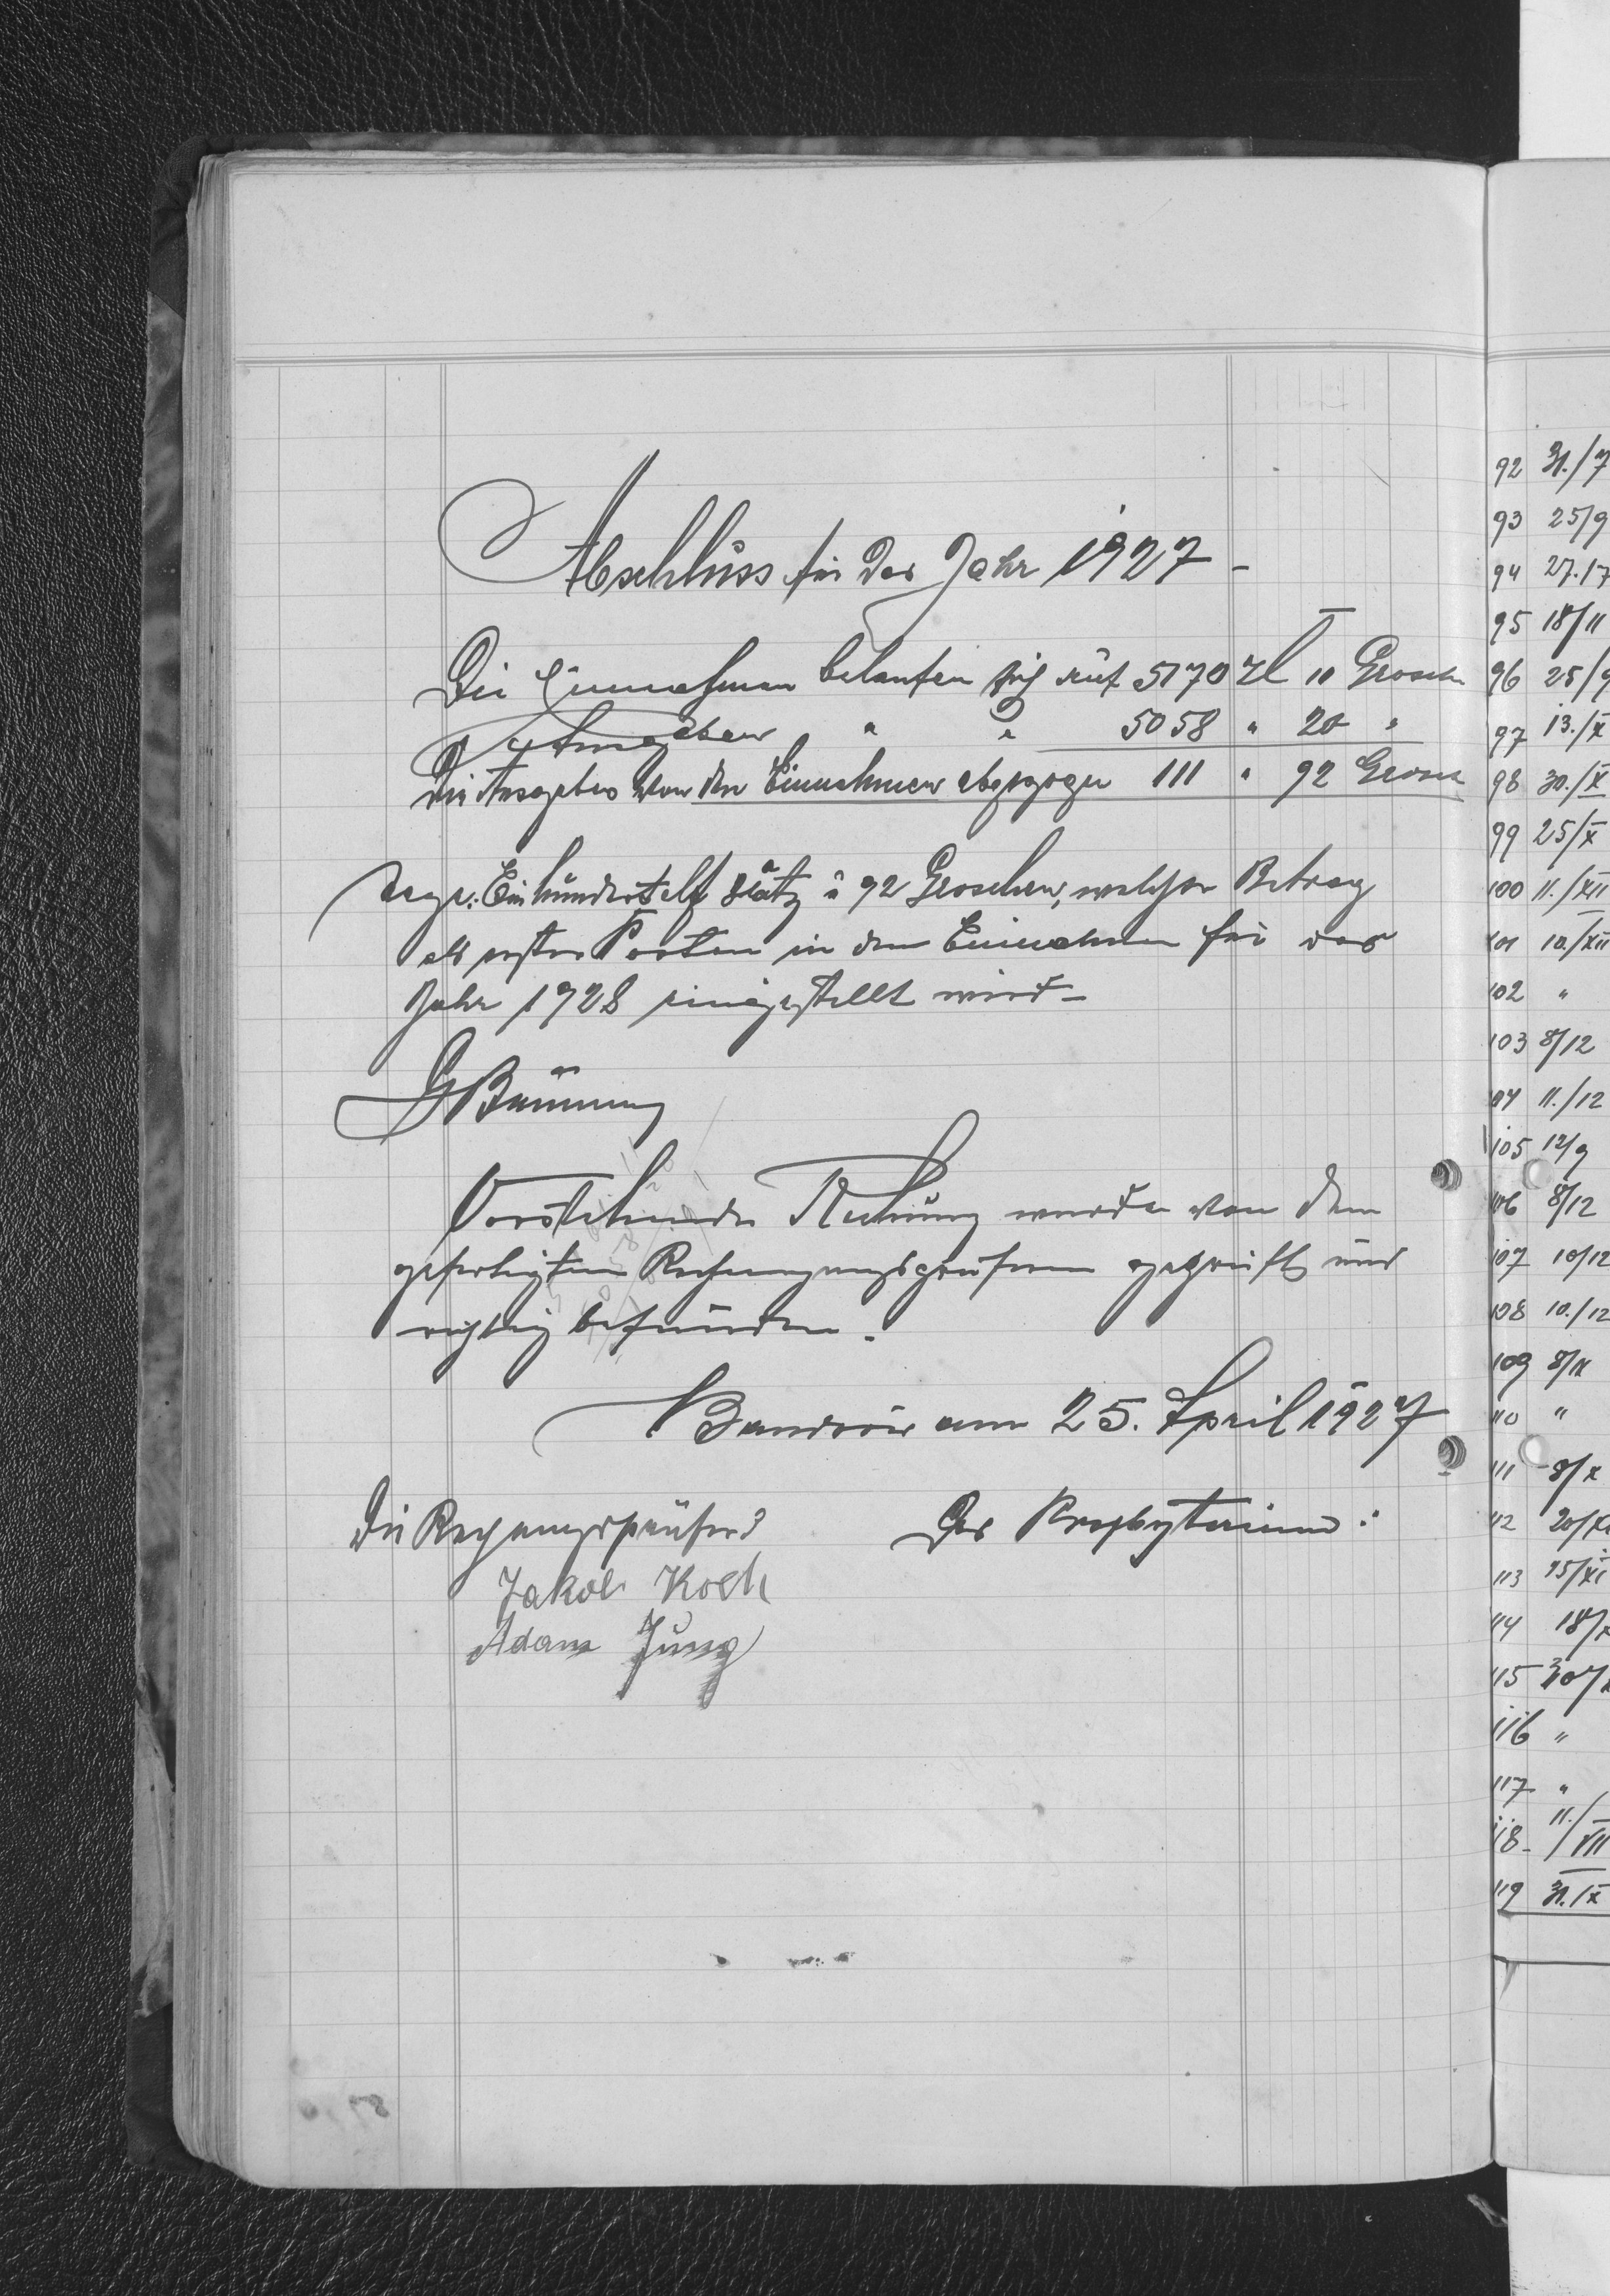 Abschluss für das Jahr 1927 -
Die Einnahmen belaufen sich auf 5170 Zl 10 Grosch
" Ausgaben " " 5058 " 20 "
Die Ausgaben von den Einnahmen abgezogen 111 " 92 Grosch
sage: Einhundertelf Złoty u 92 Groschen, welcher Betrag
als erster Posten in den Einnahmen für das
Jahr 1928 eingestellt wird -
Vorstehende Rechnung wurde von den
gefertigten Rechnungsprüfern geprüft und
richtig befunden.
am 25. April 1927
Die Rechnungsprüfer: Das Presbyterium:
Jakob Koch
Adam Jung
92 31./7
93 25/9
94 27.17
95 18/11
96 25/9
97 13./X
98 30./X
99 25/X
100 11./XII
101 10./XII
102 "
103 8/12
104 11./12
105 12/9
106 8/12
107 10/12
108 10./12
109 8/11
110 "
111 8/X
112 20/
113 15/XI
114 18/
115 30/
116 "
117 "
118 - 11./VII
119 31./X